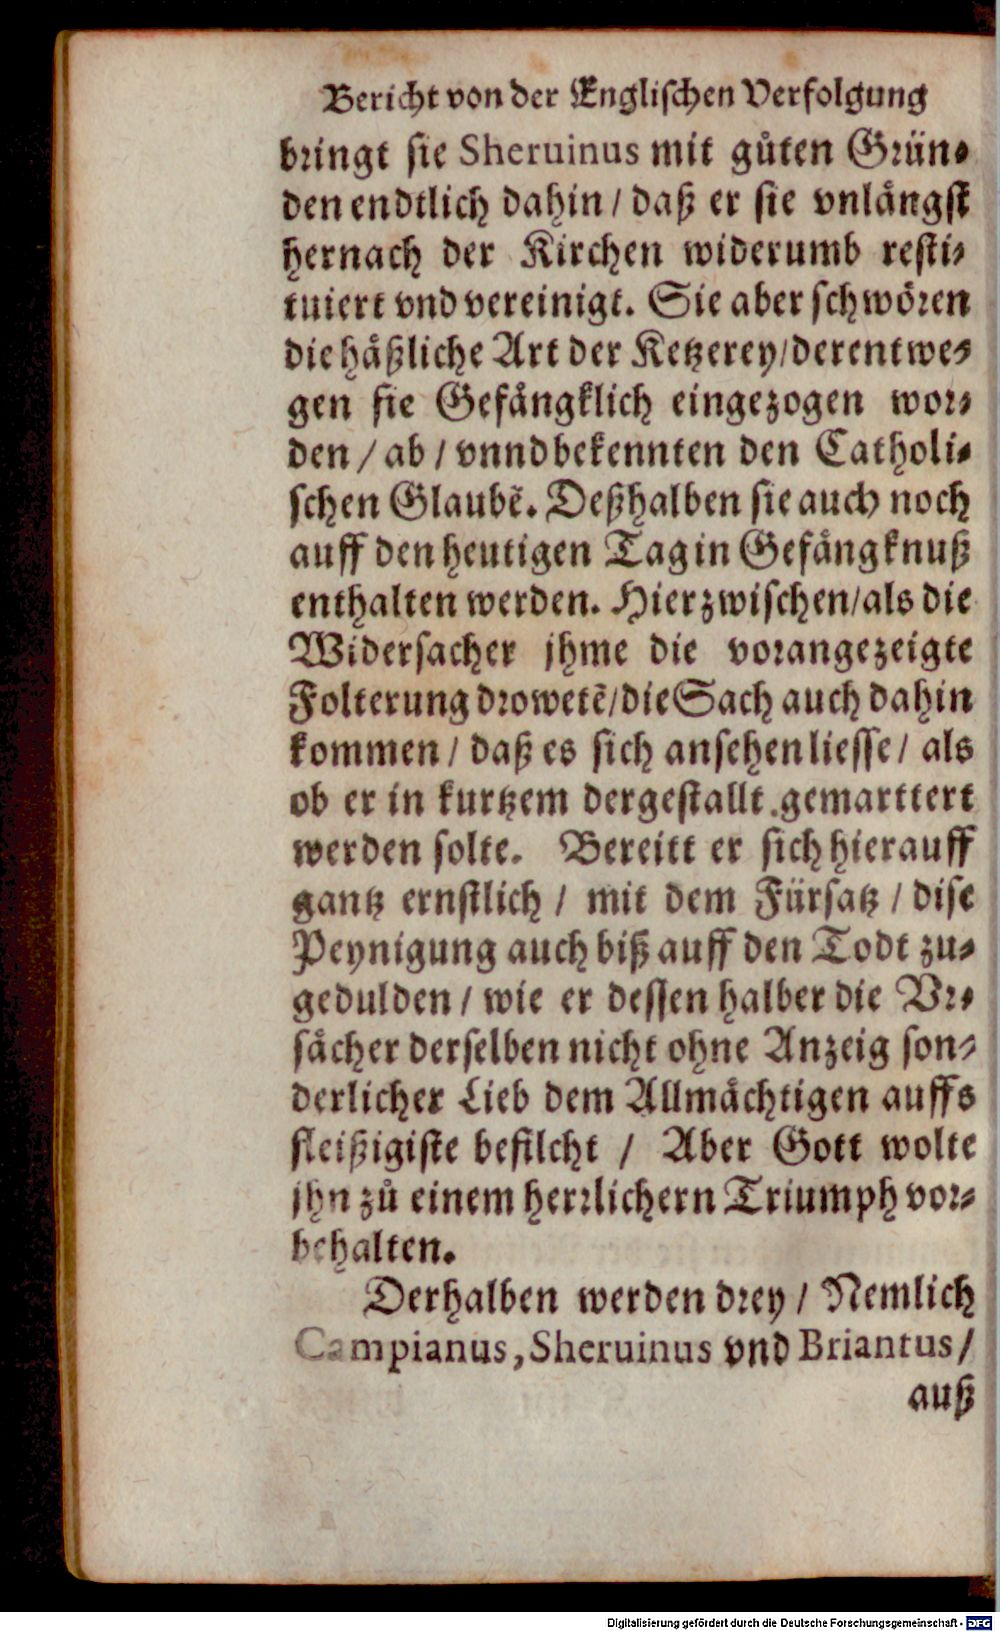 Bericht von der Englischen Verfolgung
bringt sie Sheruinus mit gůten Grün⸗
den endtlich dahin / daß er sie vnlåängst
hernach der Kirchen widerumb resti⸗
tuiert vnd vereinigt. Sie aber schwöͤren
die häßliche Art der Ketzerey / derentwe⸗
gen sie Gefängklich eingezogen wor⸗
den / ab / vnnd bekennten den Catholi⸗
schen Glaubẽ. Deßhalben sie auch noch
auff den heutigen Tag in Gefängknuß
enthalten werden. Hierzwischen / als die
Widersacher jhme die vorangezeigte
Folterung drowetẽ / die Sach auch dahin
kommen / daß es sich ansehen liesse / als
ob er in kurtzem dergestallt gemarttert
werden solte. Bereitt er sich hierauff
gantz ernstlich / mit dem Fürsatz / dise
Peynigung auch biß auff den Todt zu⸗
gedulden / wie er dessen halber die Vr⸗
sächer derselben nicht ohne Anzeig son⸗
derlicher Lieb dem Allmächtigen auffs
fleißigiste befilcht / Aber Gott wolte
jhn zů einem herrlichern Triumph vor⸗
behalten.
Derhalben werden drey / Nemlich
Campianus, Sheruinus vnd Briantus /
auß
Digitalisierung gefördert durch die Deutsche Forschungsgemeinschaft - DFG